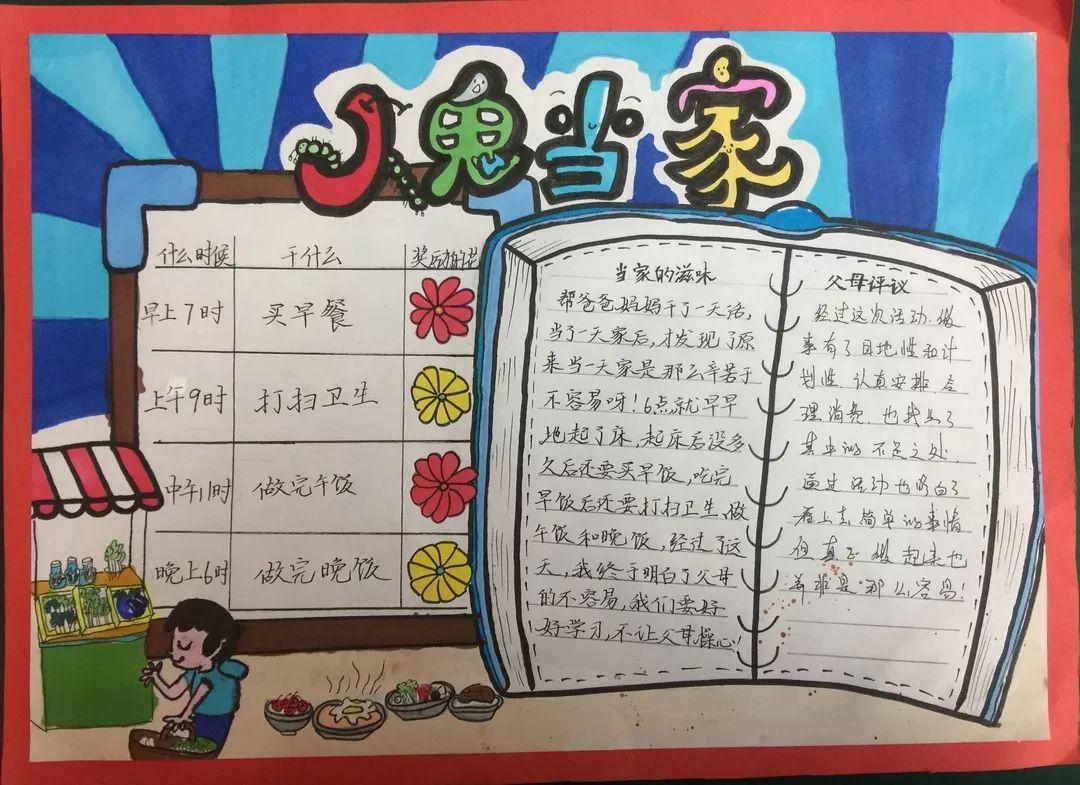 小鬼当家
什么时候 干什么 奖励的花
早上7时 买早餐
上午9时 打扫卫生
中午11时 做完午饭
晚上6时 做完晚饭
当家的滋味
帮爸爸妈妈干了一天活，
当了一天家后，才发现了原
来当一天家是那么辛苦于
不容易呀！6点就早早
地起了床，起床后没多
久后还要买早饭，吃完
早饭后还要打扫卫生、做
午饭和晚饭，经过了这
天，我终于明白了父母
的不容易，我们要好
好学习，不让父母操心！
父母评议
经过这次活动，做
事有了目地性和计
划性，认真安排，合
理消费，也找出了
其中的不足之处，
通过活动也明白了
看上去简单的事情
但真正做起来也
并非是那么容易！